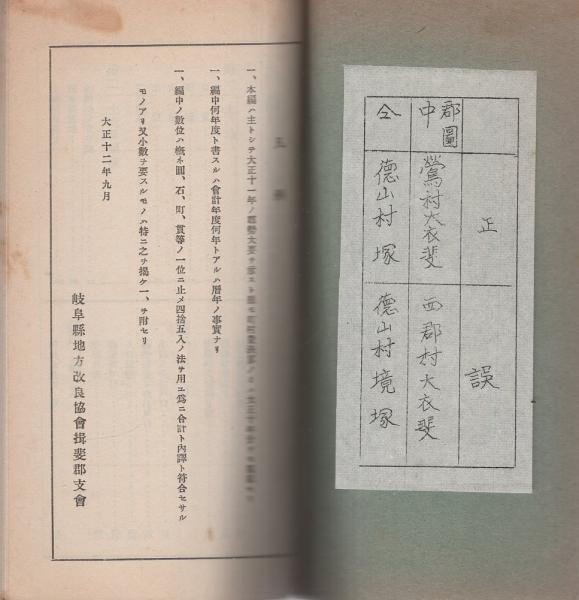 正
誤
郡圖中
鶯村大衣斐
西郡村大衣斐
仝
德山村塚
德山村境塚
一、本編ハ主トシテ大正十一年ノ郡勢大要ヲ
一、編中何年度ト書スルハ會計年度何年トアルハ曆年ノ事實ナリ
一、編中ノ數位ハ槪ネ圓、石、町、貫等ノ一位ニ止メ四捨五入ノ法ヲ用ユ爲ニ合計ト內譯ト符合セサル
モノアリ又小數ヲ要スルモノハ特ニ之ヲ揭ケ一、ヲ附セリ
大正十二年九月
岐阜縣地方改良協會揖斐郡支會